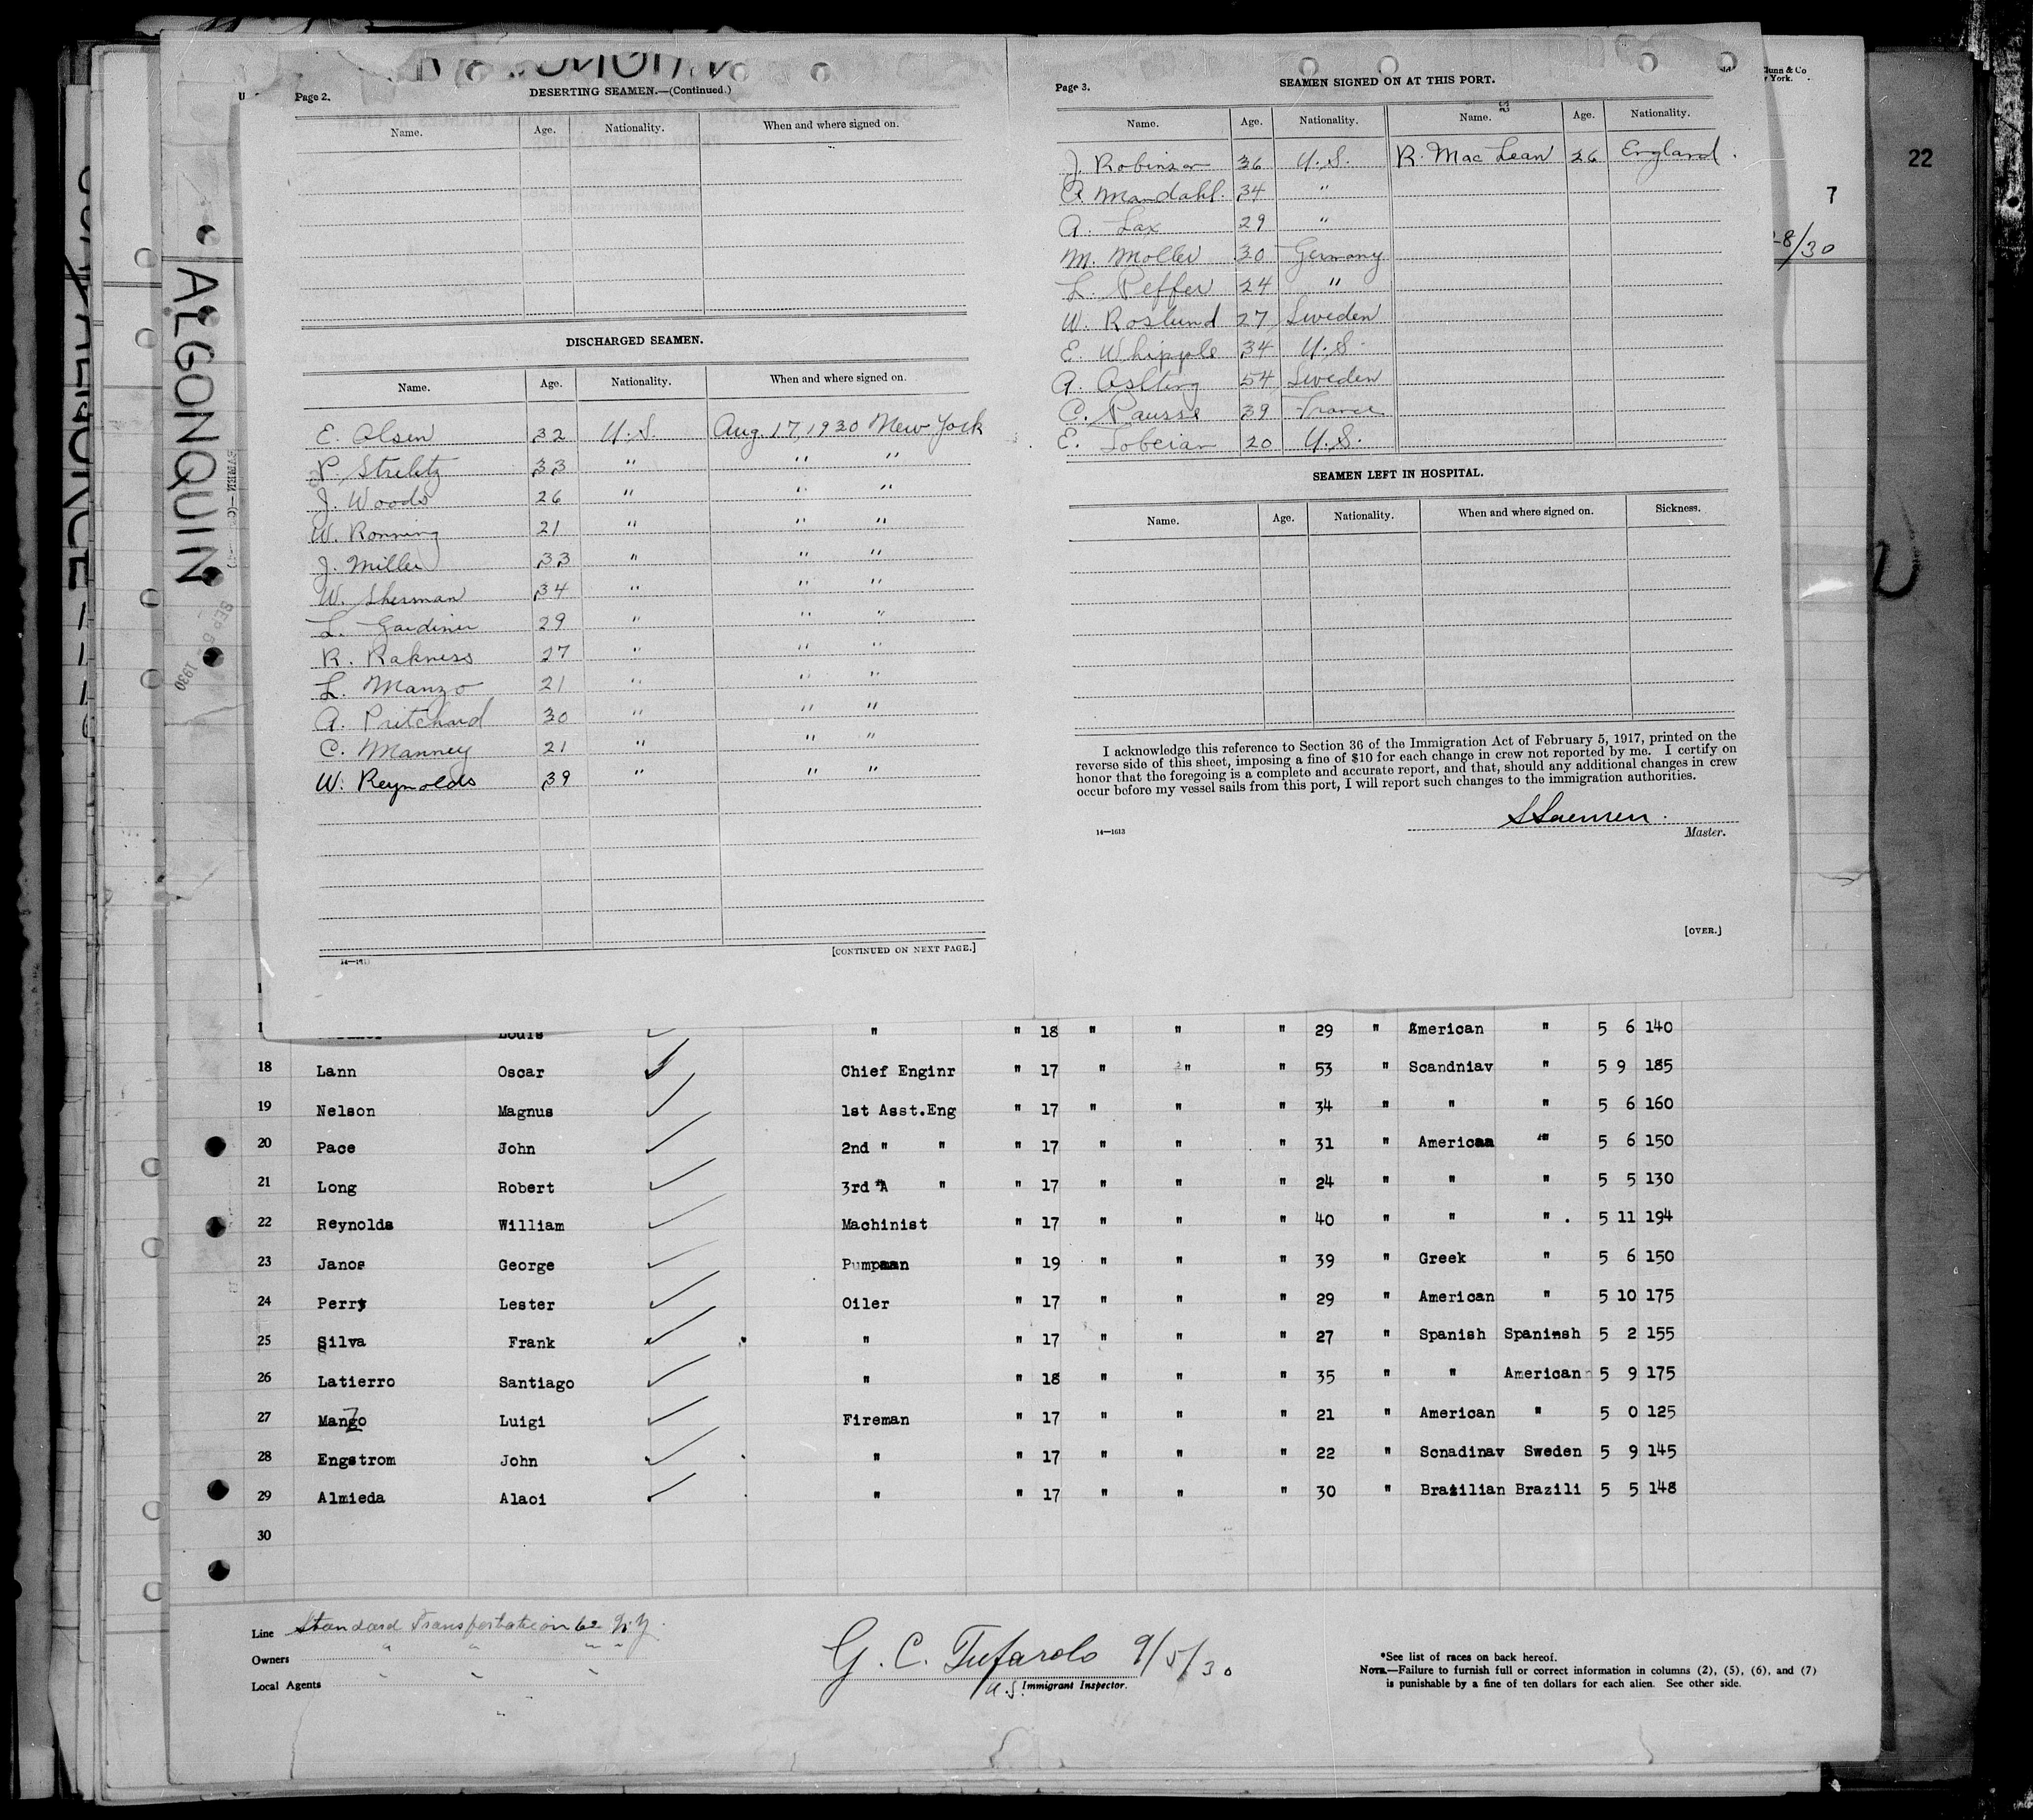 Page 2.
DESERTING SEAMEN.—(Continued.)
Name. Age. Nationality. When and where signed on.
DISCHARGED SEAMEN.
Name. Age. Nationality. When and where signed on.
E. Olsen 32 U.S. Aug. 17, 1930 New York
P. Strelitz 33 " " "
J. Woods 26 " " "
W. Ronning 21 " " "
J. Miller 33 " " "
W. Sherman 34 " " "
L. Gardiner 29 " " "
R. Rakness 27 " " "
L. Manzo 21 " " "
A. Pritchard 30 " " "
C. Manney 21 " " "
W. Reynolds 39 " " "
[CONTINUED ON NEXT PAGE.]
Page 3.
SEAMEN SIGNED ON AT THIS PORT.
Name. Age. Nationality. Name. Age. Nationality.
J. Robinson 36 U.S. R. Mac Lean 26 England.
Mandahl. 34 "
A. Lax 29 "
M. Moller 30 Germany
L. Peffer 24 "
W. Roslund 27 Sweden
E. Whipple 34 U.S.
A. Aslting 54 Sweden
C. Pausse 39 France
E. Tobeian 20 U.S.
SEAMEN LEFT IN HOSPITAL.
Name. Age. Nationality. When and where signed on. Sickness.
I acknowledge this reference to Section 36 of the Immigration Act of February 5, 1917, printed on the
reverse side of this sheet, imposing a fine of $10 for each change in crew not reported by me. I certify on
honor that the foregoing is a complete and accurate report, and that, should any additional changes in crew
occur before my vessel sails from this port, I will report such changes to the immigration authorities.
14—1613
Master.
[OVER.]
ALGONQUIN
SEP 5 1930
22
7
8/30
Louis " " 18 " " " 29 " American " 5 6 140
18 Lann Oscar Chief Enginr " 17 " " " 53 " Scandniav " 5 9 185
19 Nelson Magnus 1st Asst.Eng " 17 " " " 34 " " " 5 6 160
20 Pace John 2nd " " " 17 " " " 31 " American " 5 6 150
21 Long Robert 3rd A " " 17 " " " 24 " " " 5 5 130
22 Reynolds William Machinist " 17 " " " 40 " " " . 5 11 194
23 Janos George Pumpman " 19 " " " 39 " Greek " 5 6 150
24 Perry Lester Oiler " 17 " " " 29 " American " 5 10 175
25 Silva Frank " " 17 " " " 27 " Spanish Spaninsh 5 2 155
26 Latierro Santiago " " 18 " " " 35 " " American 5 9 175
27 Manzo Luigi Fireman " 17 " " " 21 " American " 5 0 125
28 Engstrom John " " 17 " " " 22 " Scnadinav Sweden 5 9 145
29 Almieda Alaoi " " 17 " " " 30 " Brazilian Brazili 5 5 148
30
Line Standard Transportation Co N.Y.
Owners " " " "
Local Agents " " "
G. C. Tufarolo 9/5/30
U.S. Immigrant Inspector.
*See list of races on back hereof.
NOTE.—Failure to furnish full or correct information in columns (2), (5), (6), and (7)
is punishable by a fine of ten dollars for each alien. See other side.